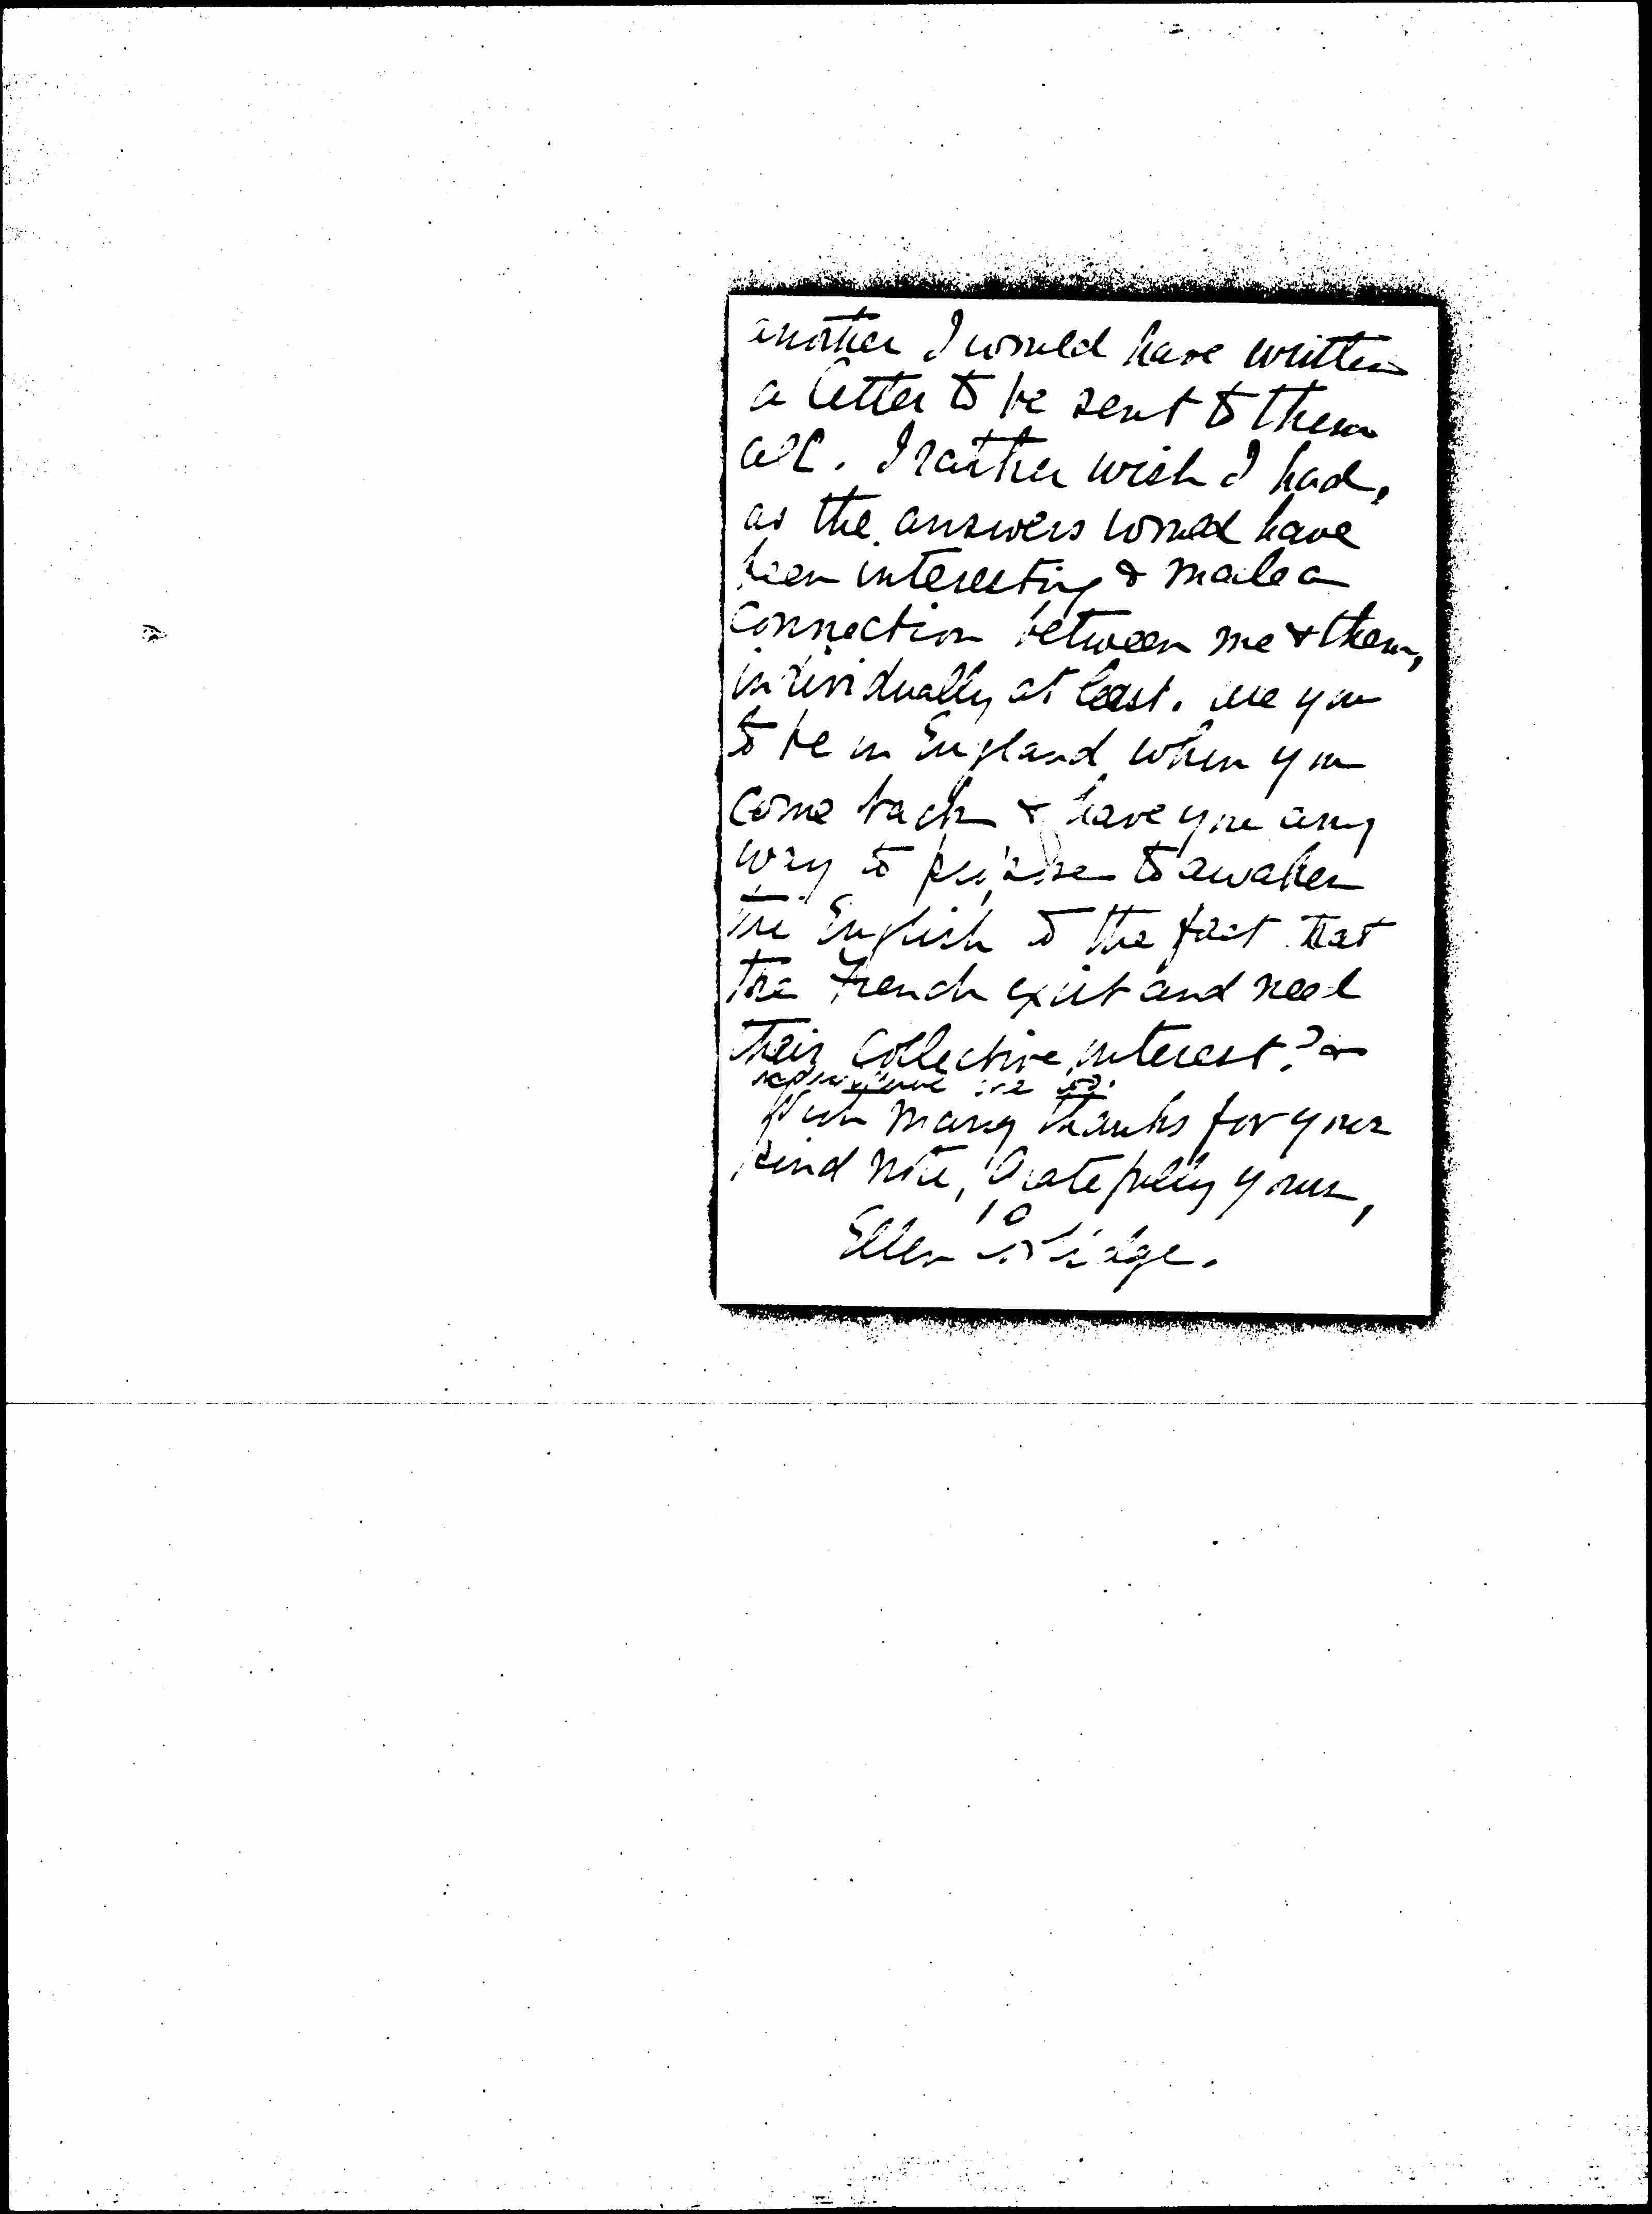 another I would have written
a letter to be sent to them
all. I rather wish I had,
as the answers would have
been interesting & made a
connection between me & them,
individually at least. Are you
to be in England when you
come back & have you any
way to propose to awaken
the English to the fact that
the French exist and need
their collective interest? or
With many thanks for your
kind note, Gratefully yours,
Ellen